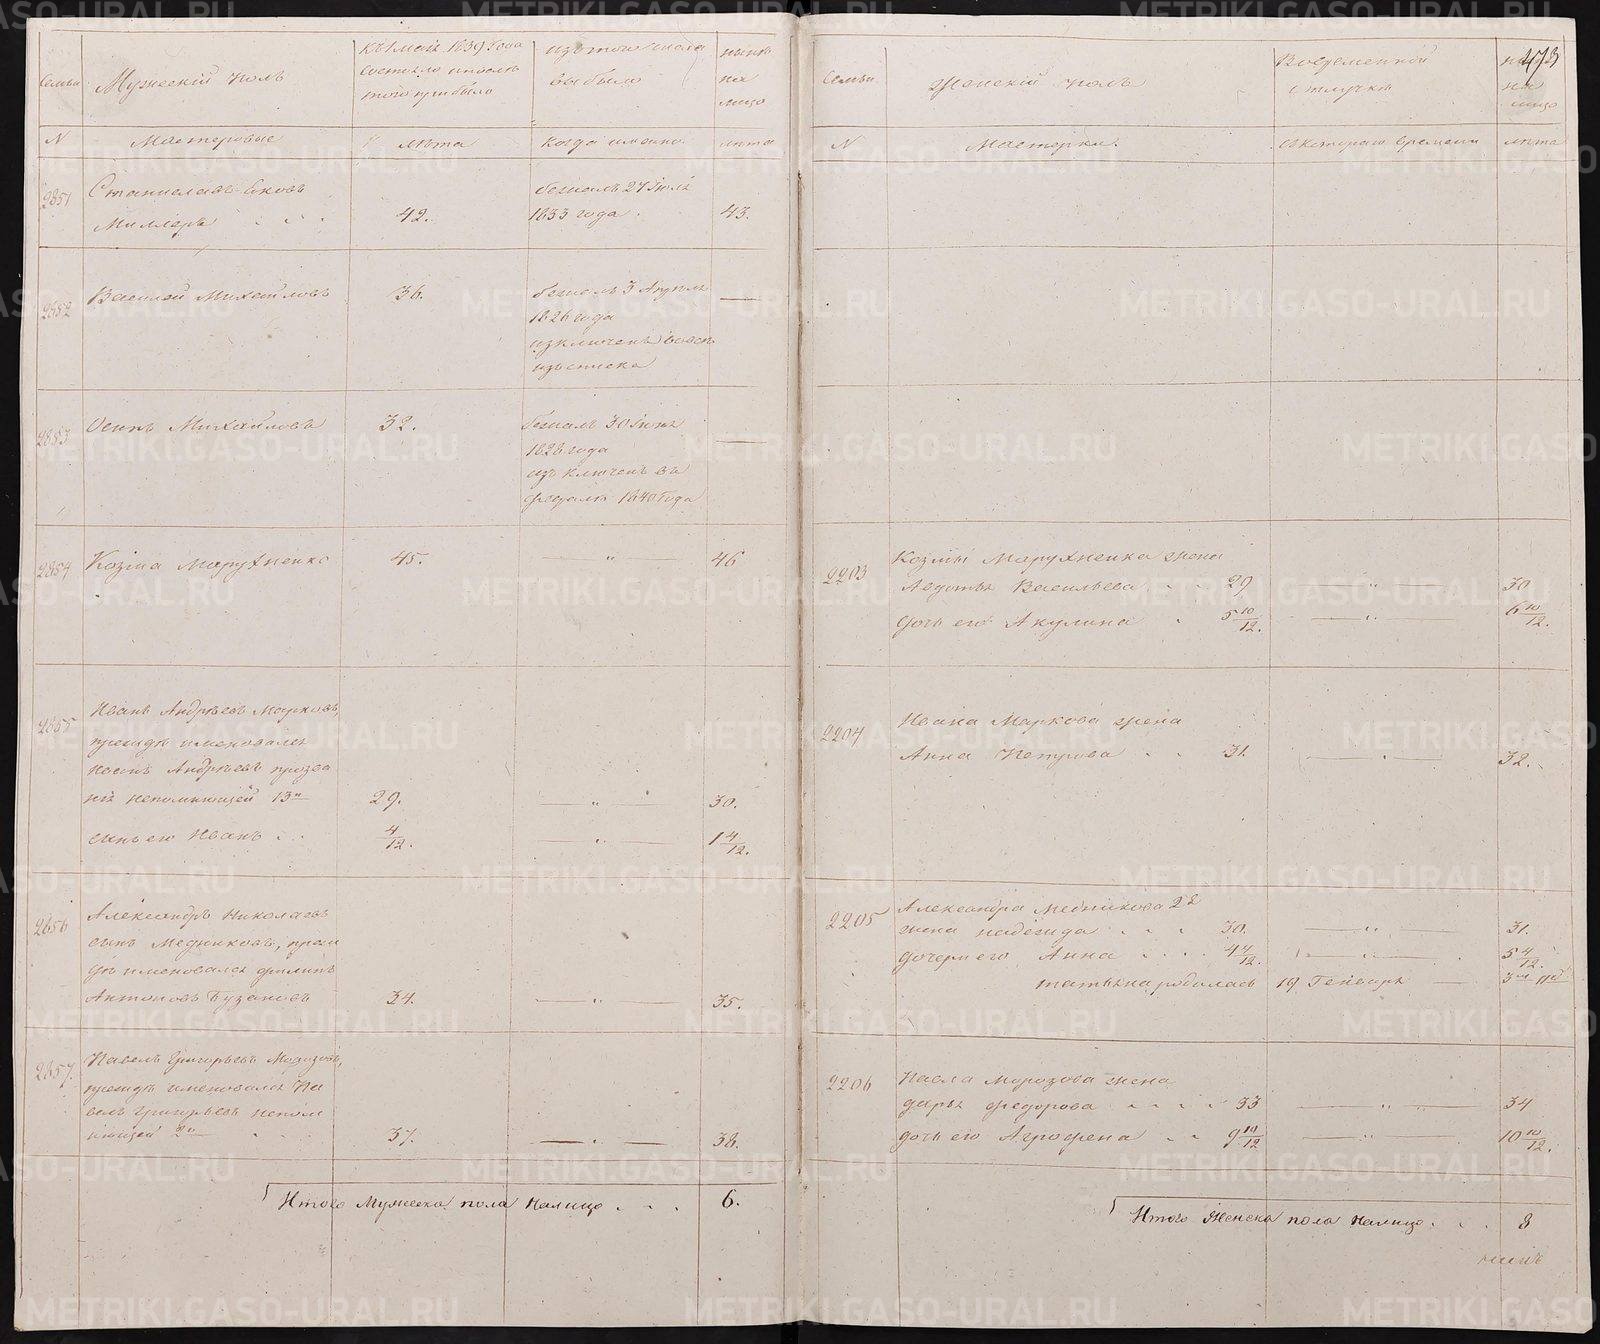 Семьи
Мужескій полъ
къ 1 мая 1839 года
состояло и послѣ
того прибыло
изъ того числа
выбыло
нынѣ
на
лицо
N
Мастеровые
лѣта
когда именно
лѣта
2851
Станиславъ Яковъ
Миллеръ
42.
бежалъ 27 Іюля
1833 года.
43.
2852
Василей Михайловъ
36.
бежалъ 3 Апреля
1826 года
изключенъ вовсе
изъ списка
2853
Осипъ Михайловъ
32.
бежалъ 30 Іюня
1828 года
изъключенъ въ
феврале 1840 года
2854
Козма Марухненко
45.
46
2855
Иванъ Андрѣевъ Марковъ,
прежде именовался
Иванъ Андрѣевъ прозва
нія непомнющей 13й
29.
30.
сынъ его Иванъ
4/12.
1 4/12.
2856
Александръ Николаевъ
сынъ Медниковъ, преж
де именовался филипъ
Антоновъ Бузановъ
34.
35.
2857.
Павелъ Григорьевъ Морозовъ,
прежде именовался Па
велъ Григорьевъ непом
нющей 2й
37.
38.
Итого Мужеска пола налицо
6.
473
Семьи
Женскій полъ
Вовременной
отлучкѣ
на
лицо
N
Мастерки.
съ котораго времени
лѣта
2203
Козмы Марухненка жена
Авдотья Васильева
29
30
дочь его Акулина
5 10/12.
6 10/12.
2204
Ивана Маркова жена
Анна Петрова
31.
32.
2205
Александра Медникова 2я
жена надежда
30.
31.
дочери его Анна
4 4/12.
5 4/12.
татьяна родилась 19 Генваря
2206
Павла Морозова жена
дарья федорова
33
34
дочь его Агрофена
9 10/12
10 10/12.
Итого Женска пола налицо
8